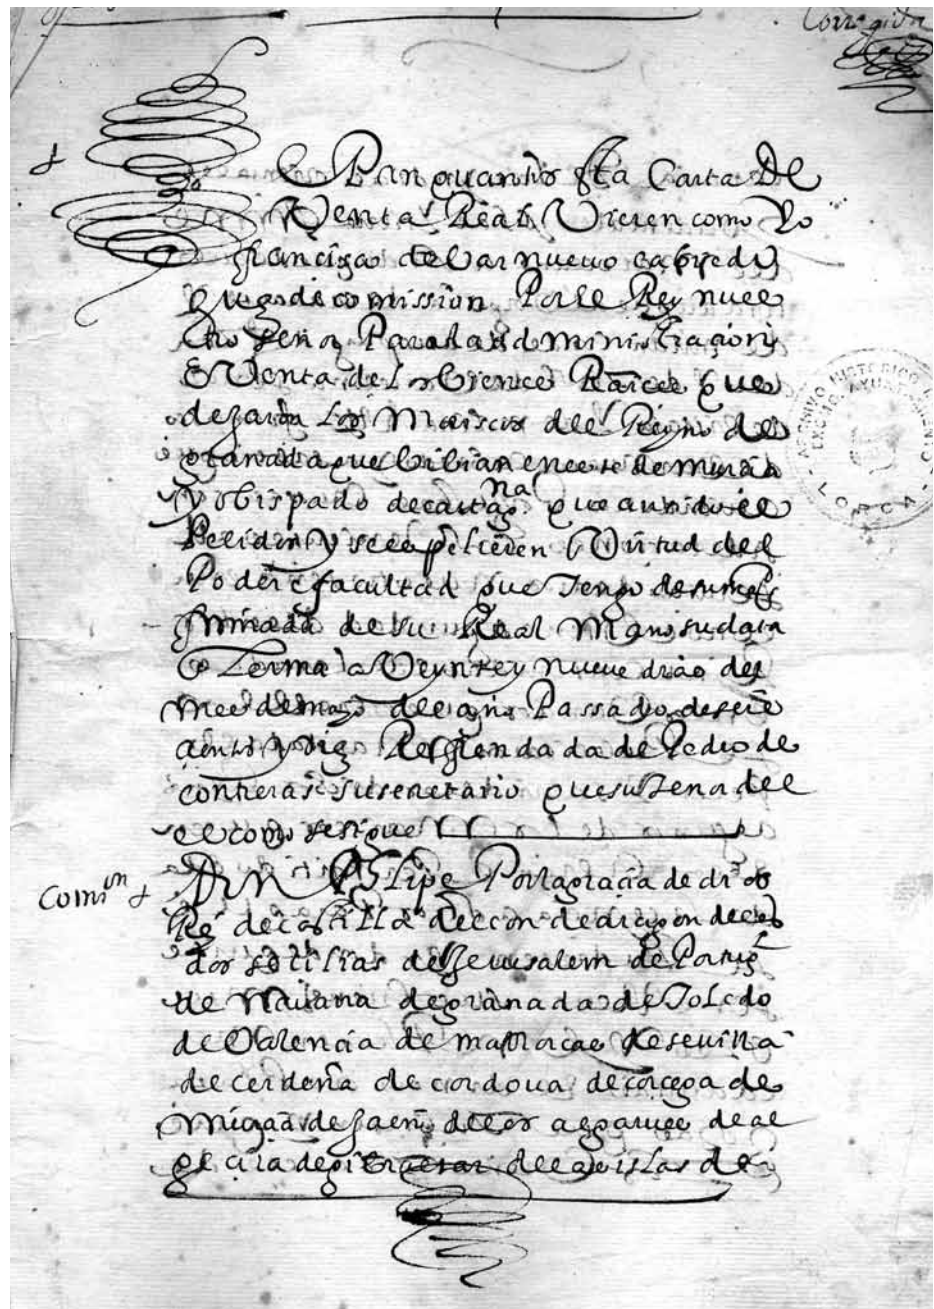 Corregida
Sepan quantos esta Carta de
Venta Real Vieren como Yo
francisco de
Juez de comission Por el Rey nues
tro señor Para la administracion
E Venta de los bienes Raices que
dejaron los Moriscos del Reyno de
granada que bibian en este de murcia
y obispado de cartagna que an sido
en Virtud del
Poder e facultad que Tengo de su magd
firmada de su Real Mano su data
en Lerma a Veynte y nueve dias del
mes de mayo del año Passado de seis
cientos y diez Refrendada de Pedro de
contreras su secretario que su Tenor del
es como se sigue
Comion Don Felipe Por la gracia de dios
Rey de castilla de leon de aragon de las
dos secilias de Jerusalem de Portugl
de Navarra de granada de Toledo
de Valencia de mallorcas de sevilla
de cerdeña de cordova de corcega de
Murcia de Jaen de los algarves de al
gecira de gibraltar de las islas de
ARCHIVO HISTORICO
EXCMO. AYUNTAMIENTO
LORCA